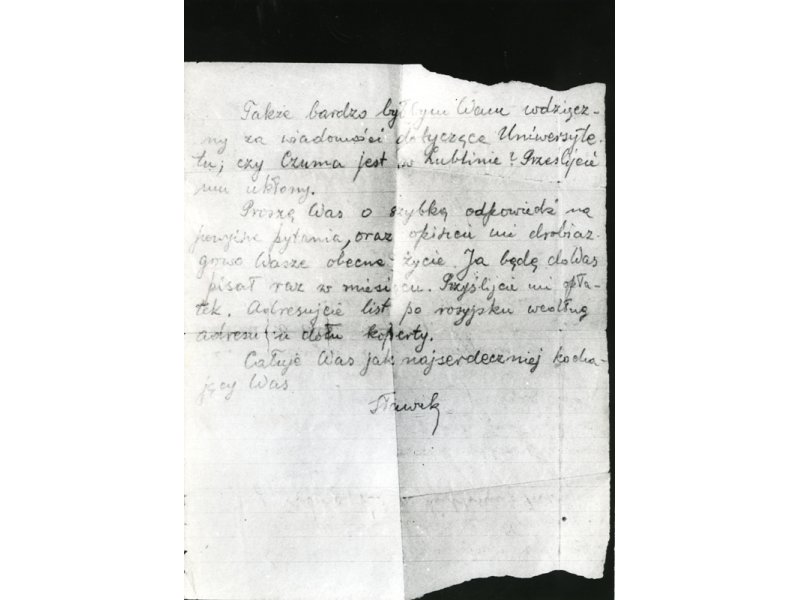 Także bardzo byłbym Wam wdzięcz-
ny za wiadomości dotyczące Uniwersyte-
tu; czy Czuma jest w Lublinie? Prześlijcie
mu ukłony.
Proszę Was o szybką odpowiedź na
powyższe pytania, oraz opiszcie mi drobiaz-
gowo Wasze obecne życie. Ja będę do Was
pisał raz w miesiącu. Przyślijcie mi opła-
tek. Adresujcie list po rosyjsku według
adresu u dołu koperty.
Całuję Was jak najserdeczniej kocha-
jący Was
Sławek